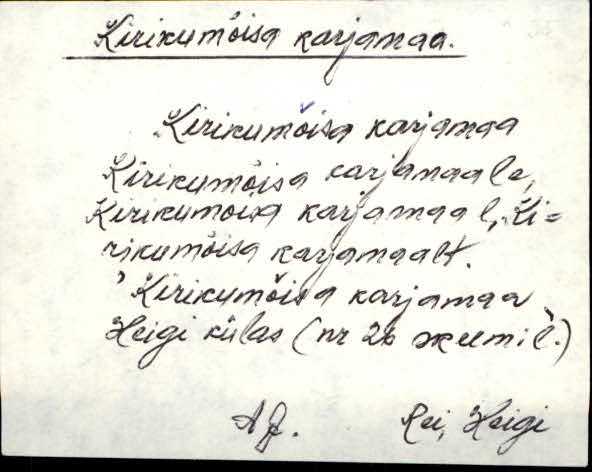 Kirikumõisa karjamaa.
Kirikumõisa karjamaa
Kirikumõisa karjamaale,
Kirikumõisa karjamaal, Ki=
rikumõisa karjamaalt.
Kirikumõisa karjamaa
Heigi külas (nr 26 skeemil.)
AJ. Rei, Heigi